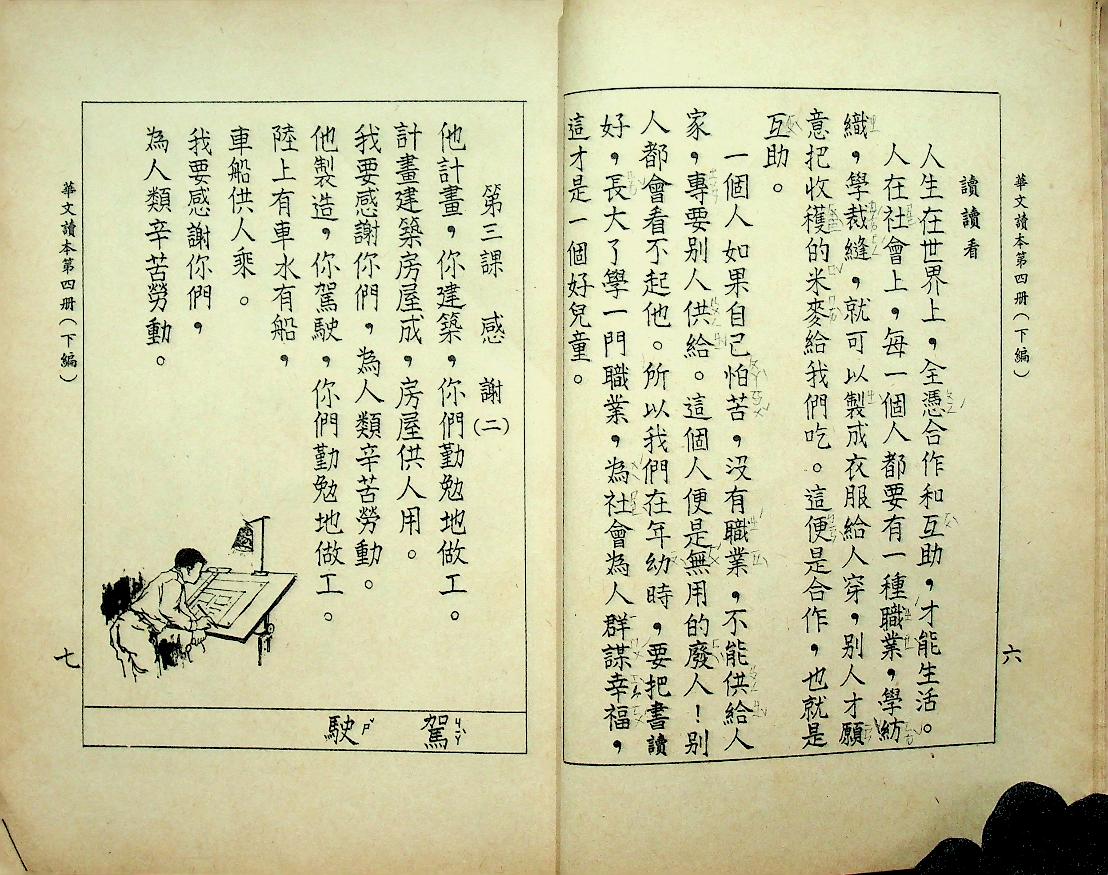 華文讀本第四册(下編)
六
讀讀看
人生在世界上,全憑合作和互助,才能生活。
人在社會上,每一個人都要有一種職業,學紡
織,學裁縫,就可以製成衣服給人穿,別人才願
意把收穫的米麥給我們吃。這便是合作,也就是
互助。
一個人如果自己怕苦,没有職業,不能供給人
家,專要別人供給。這個人便是無用的廢人!別
人都會看不起他。所以我們在年幼時,要把書讀
好,長大了學一門職業,為社會為人群謀幸福,
這才是一個好兒童。
第三課 感謝(二)
他計畫,你建築,你們勤勉地做工。
計畫建築房屋成,房屋供人用。
我要感謝你們,為人類辛苦勞動。
他製造,你駕駛,你們勤勉地做工。
陸上有車水有船,
車船供人乘。
我要感謝你們,
為人類辛苦勞動。
駕ㄐㄧㄚˋ
駛ㄕˇ
華文讀本第四册(下編)
七